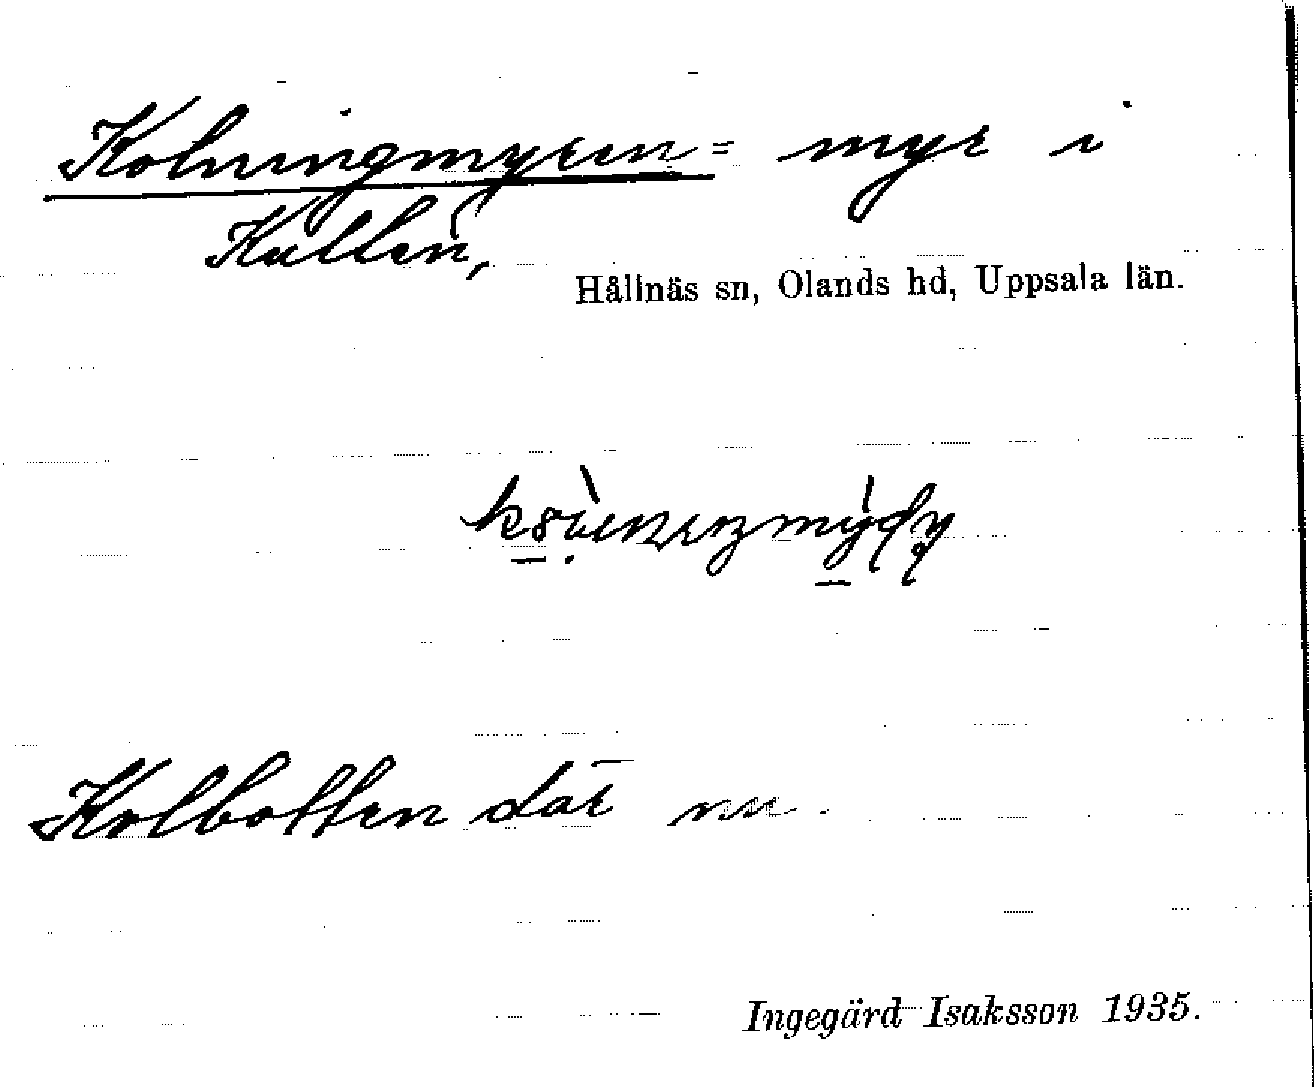 Kolningmyren = myr i
Kullen,
Hållnäs sn, Olands hd, Uppsala län.
Kolbotten där nu.
Ingegärd Isaksson 1935.